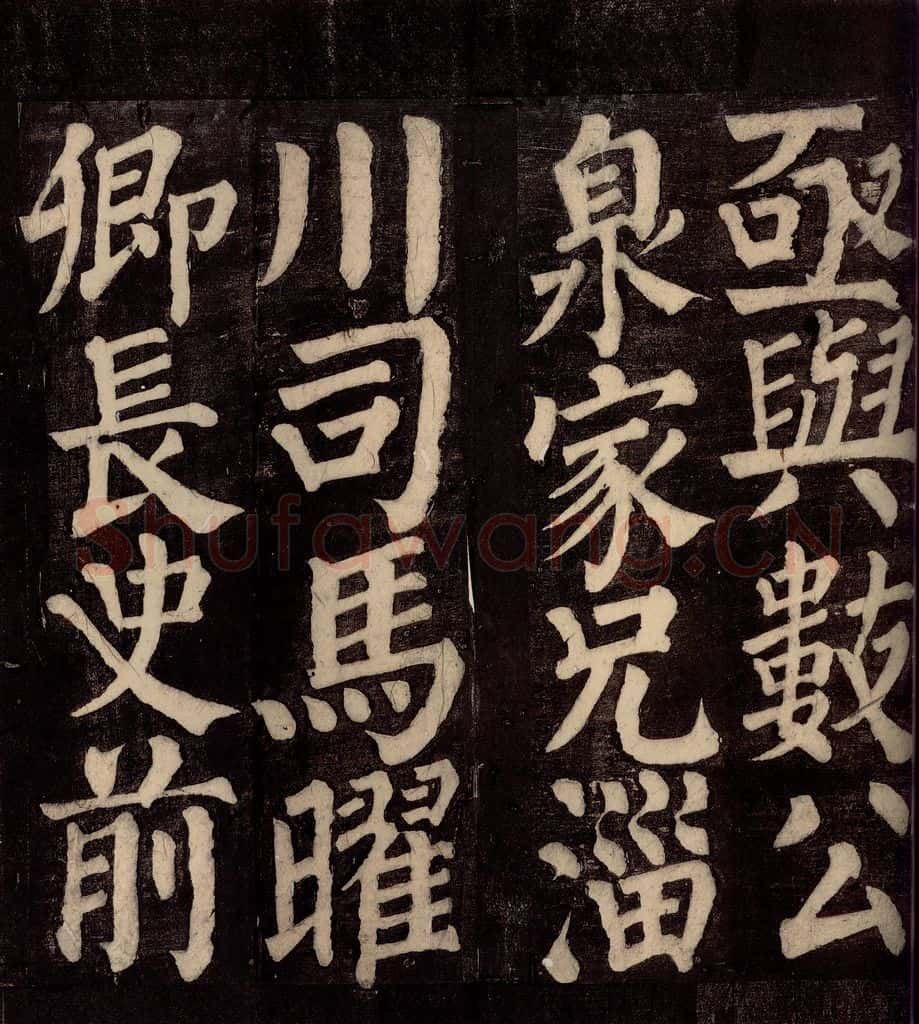 亟與數公
泉家兄淄
川司馬曜
卿長史前
Shufawang.CN